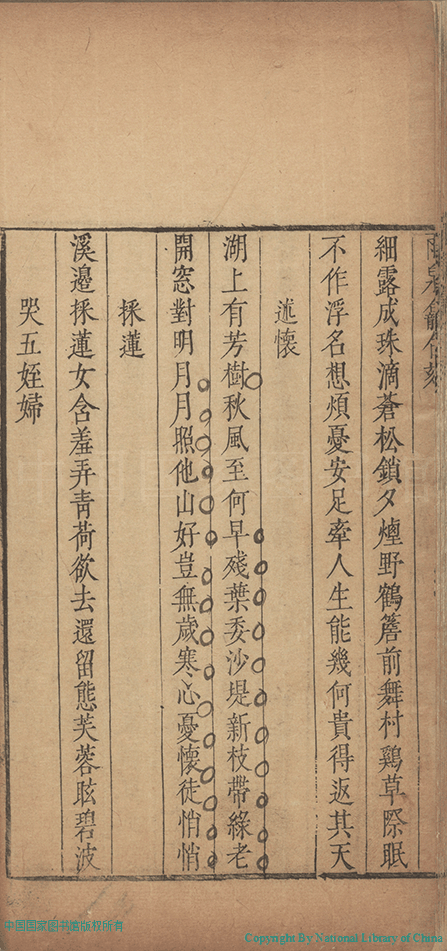 細露成珠滴蒼松鎖夕煙野鶴簷前舞村鷄草際眠
不作浮名想煩憂安足牽人生能幾何貴得返其天
述懷
湖上有芳樹秋風至何早殘葉委沙堤新枝帶綠老
開窓對明月月照他山好豈無歲寒心憂懷徒悄悄
採蓮
溪邊採蓮女含羞弄靑荷欲去還留態芙蓉眩碧波
哭五姪婦
中国国家图书馆版权所有
Copyright By National Library of China